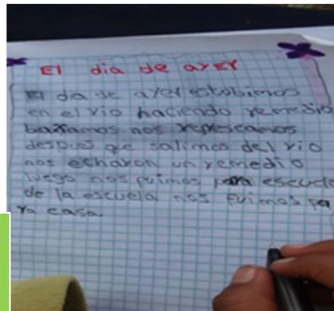 El dia de ayer
El da de ayer estobimos
en el rio haciendo remedio
baxamos nos refrescamos
despues que salimos del rio
nos echaron un remedio
luego nos fuimos para escuela
de la escuela nos fuimos pa
ra casa